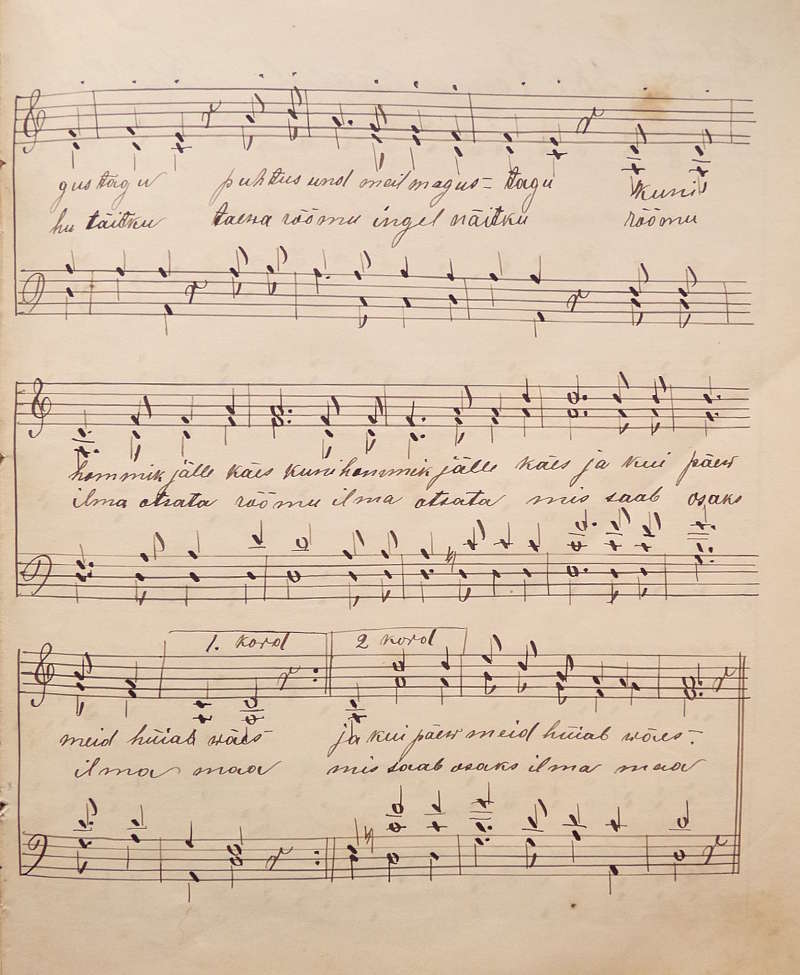 gustagu puhtus und meil magus- tagu kuni
hu täitku taewa rõõmu ingel näitku rõõmu
hommik jälle käes kuni hommik jälle käes ja kui päew
ilma otsata rõõmu ilma otsata mis saab osaks
1. kord 2 kord
meid hüiab wäes- ja kui päew meid hüiab wäes-.
ilma maa mis saab osaks ilma maa